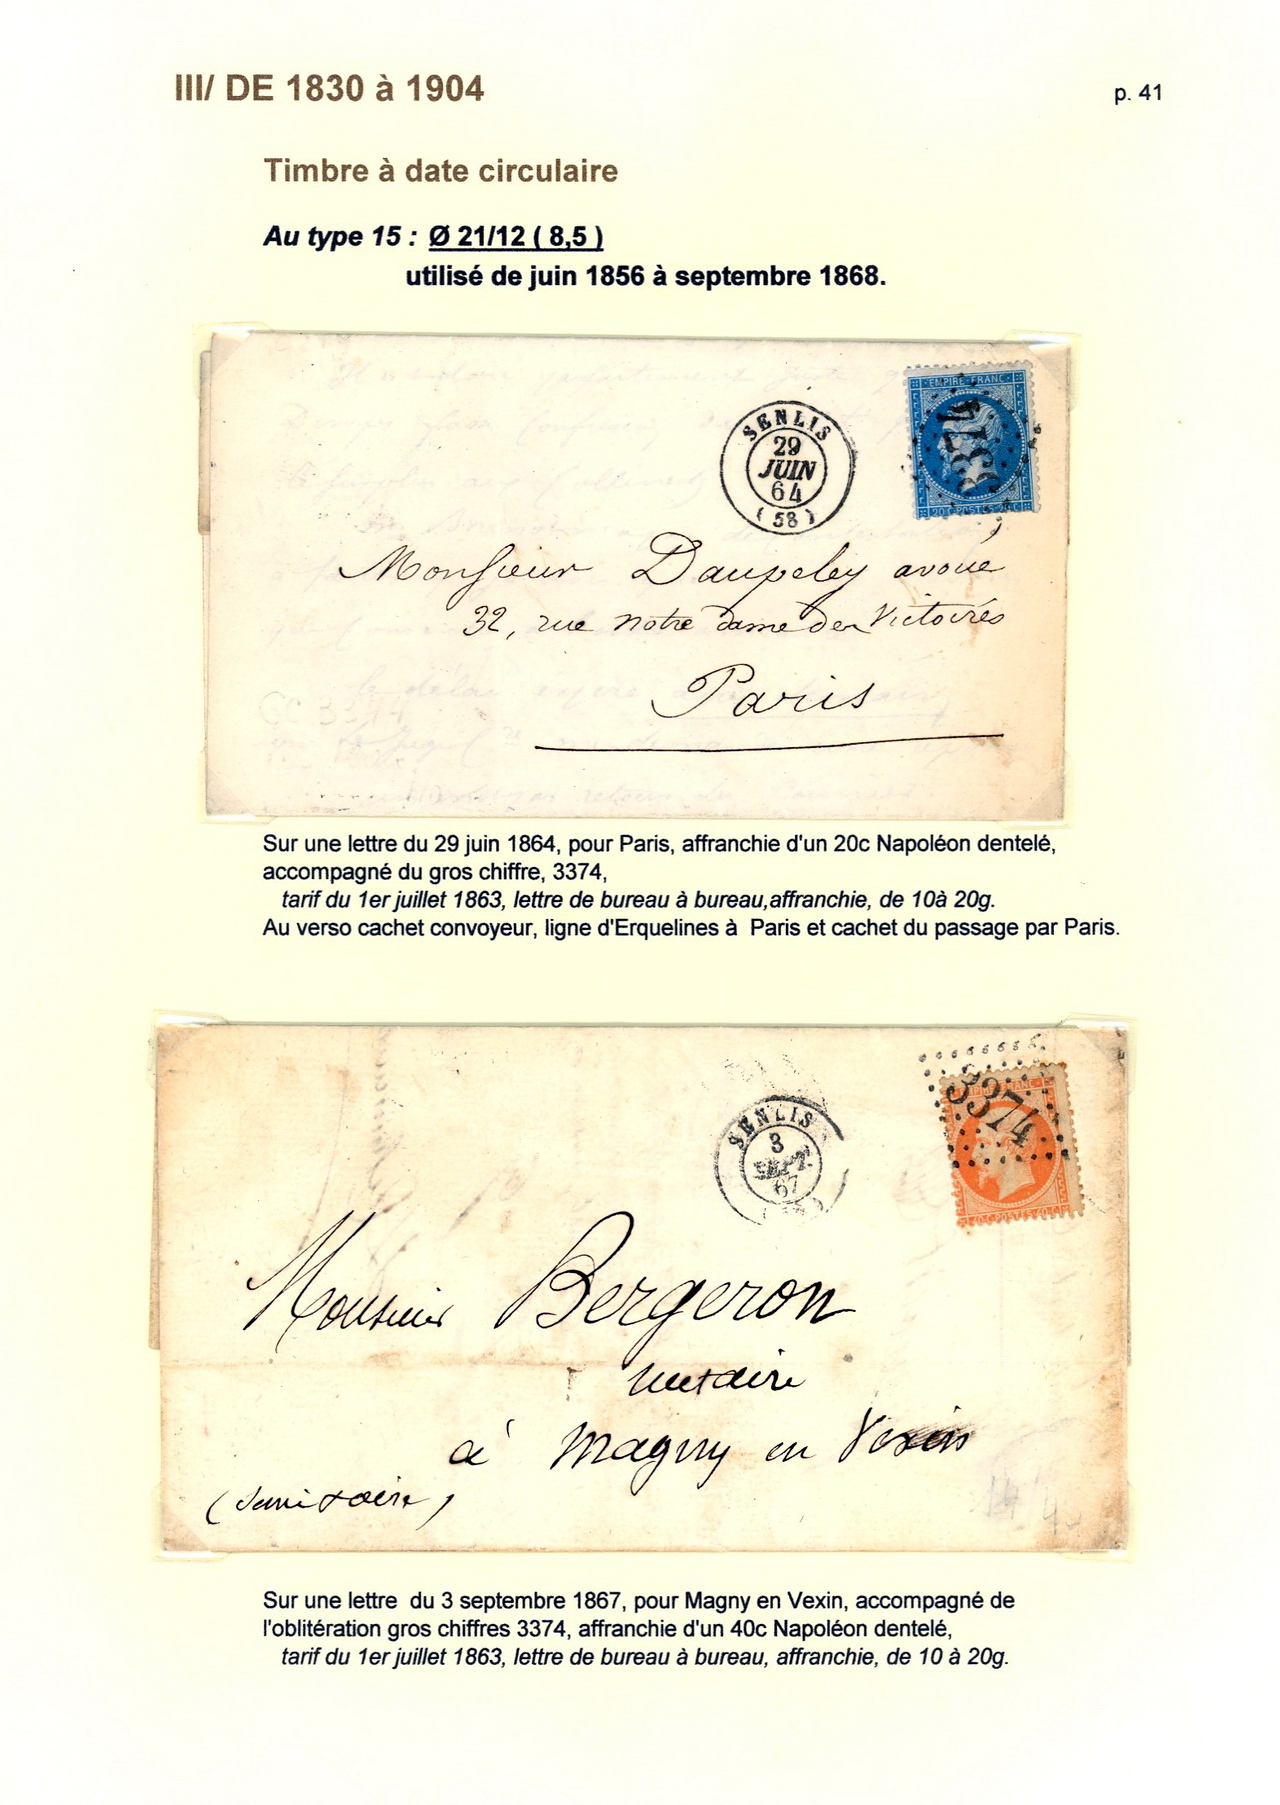 III/ DE 1830 à 1904
p. 41
Timbre à date circulaire
Au type 15 : Ø 21/12 ( 8,5 )
utilisé de juin 1856 à septembre 1868.
EMPIRE FRANC
3374
20 C POSTES 20 C
SENLIS
29
JUIN
64
( 58 )
Monsieur Daupeley avoué
32, rue Notre dame des Victoires
Paris
GC 3374
Sur une lettre du 29 juin 1864, pour Paris, affranchie d'un 20c Napoléon dentelé,
accompagné du gros chiffre, 3374,
tarif du 1er juillet 1863, lettre de bureau à bureau,affranchie, de 10à 20g.
Au verso cachet convoyeur, ligne d'Erquelines à Paris et cachet du passage par Paris.
3374
40 C POSTES 40 C
SENLIS
3
SEPT.
67
Monsieur Bergeron
notaire
à Magny en Vexin
Sur une lettre du 3 septembre 1867, pour Magny en Vexin, accompagné de
l'oblitération gros chiffres 3374, affranchie d'un 40c Napoléon dentelé,
tarif du 1er juillet 1863, lettre de bureau à bureau, affranchie, de 10 à 20g.